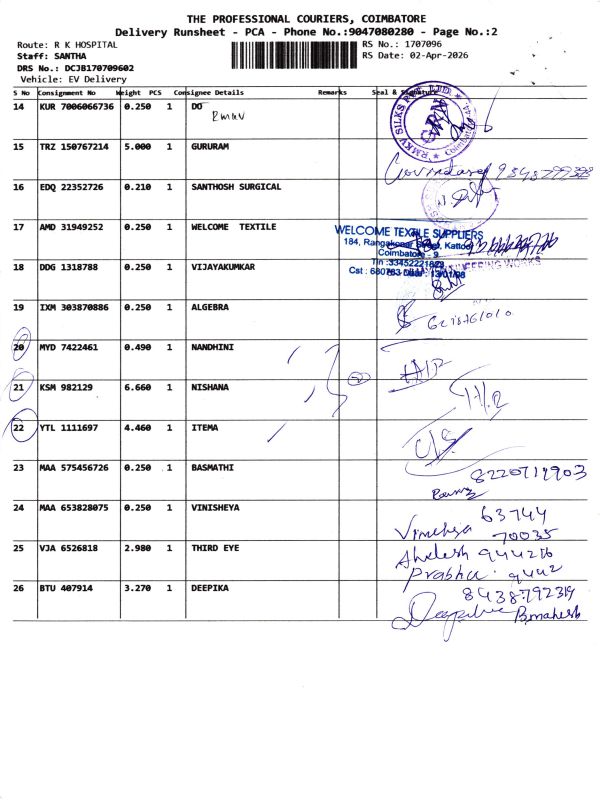 THE PROFESSIONAL COURIERS, COIMBATORE
Delivery Runsheet - PCA - Phone No.:9047080280 - Page No.:2
Route: R K HOSPITAL
RS No.: 1707096
Staff: SANTHA
RS Date: 02-Apr-2026
DRS No.: DCJB170709602
Vehicle: EV Delivery
S No Consignment No Weight PCS Consignee Details Remarks Seal & Signature
14 KUR 7006066736 0.250 1 DO
RMKV
RMKV SILKS PVT. LTD.
15 TRZ 150767214 5.000 1 GURURAM
16 EDQ 22352726 0.210 1 SANTHOSH SURGICAL
17 AMD 31949252 0.250 1 WELCOME TEXTILE
WELCOME TEXTILE SUPPLIERS
Coimbatore - 9
18 DDG 1318788 0.250 1 VIJAYAKUMKAR
ENGINEERING WORKS
19 IXM 303870886 0.250 1 ALGEBRA
20 MYD 7422461 0.490 1 NANDHINI
21 KSM 982129 6.660 1 NISHANA
22 YTL 1111697 4.460 1 ITEMA
23 MAA 575456726 0.250 1 BASMATHI
8220711903
24 MAA 653828075 0.250 1 VINISHEYA
63744
70035
25 VJA 6526818 2.980 1 THIRD EYE
Prabhu
26 BTU 407914 3.270 1 DEEPIKA
8438792319